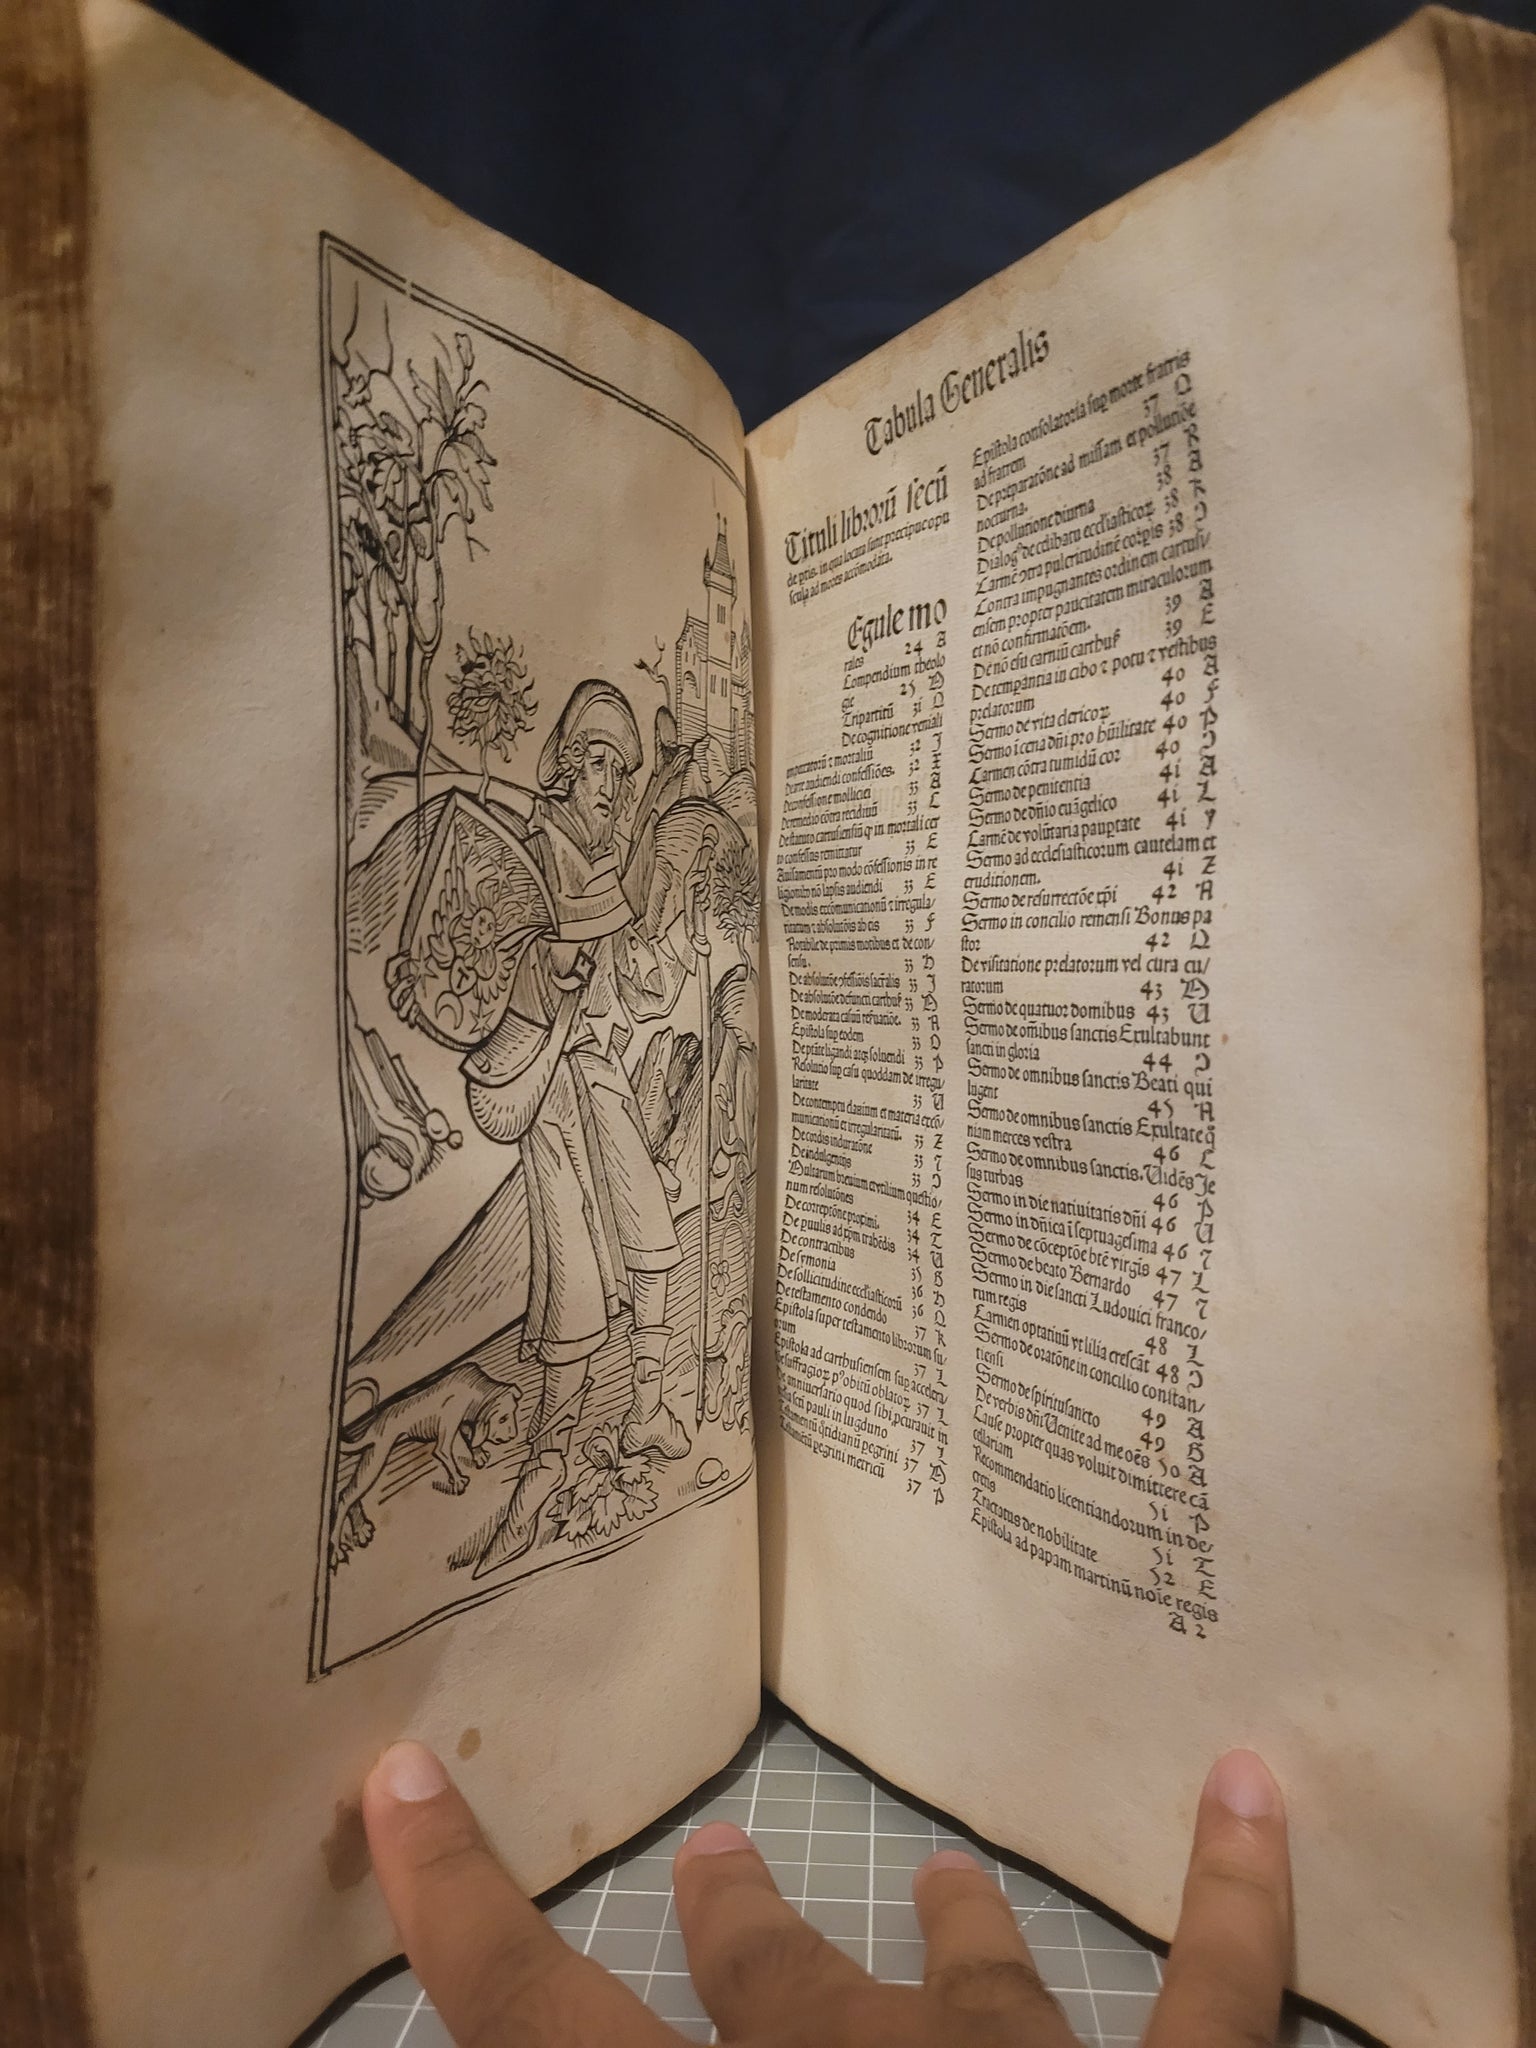 Tabula Generalis
Tituli librorū secū
de ptis. in qua locata sunt precipue opu
scula ad mores accōmodata.
Egule mo
rales 24 A
Compendium theolo
gie 25 D
Tripartitū 31 Q
De cognitione veniali
um peccatorū ⁊ mortaliū 32 J
De arte audiendi confessiōes. 32 X
De confessione molliciei 33 A
De remedio cōtra recidiuū 33 C
to confessus remittatur 33 E
Auisamentū pro modo cōfessionis in re
ligionib nō lapsis audiendi 33 E
De modis excōmunicationū ⁊ irregula⸗
ritatum ⁊ absolutōis ab eis 33 F
Notabile de primis motibus et de con⸗
sensu. 33 H
De absolutōe ꝯfessiōis sacr̄alis 33 J
De absolutōe defuncti carthuſ 33
De moderata casuū reſuatiōe. 33
Epistola sup eodem 33 O
De ptāte ligandi atq; soluendi 33 P
Resolutio sup casu quoddam de irregu⸗
laritate 33 U
De contemptu clauium et materia excō⸗
municationū et irregularitatū. 33 Z
De cordis induratōne 33 ⁊
De indulgentijs 33 Ɔ
Multarum breuium ⁊ vtilium questio⸗
num resolutōnes 34 E
De correptōne proximi. 34 T
De puulis ad xp̄m trahēdis 34 U
De contractibus 35 B
De symonia 36 H
De sollicitudine eccl̄iasticorū 36 Q
De testamento condendo 37 K
Epistola super testamento librorum su⸗
orum 37 L
Epistola ad carthusiensem sup accelera⸗
de suffragioꝝ pꝰ obitū oblatoꝝ 37 L
De anniuersario quod sibi pcurauit in
ecclia scti pauli in lugduno 37 J
Testamentū q̄tidianū pegrini 37
Testamentū pegrini metricū 37 P
Epistola consolatoria sup morte fratris
ad fratrem 37 Q
De preparatōne ad missam et pollutiōe
nocturna. 37 R
De pollutione diurna 38 A
Dialogꝰ de celibatu eccl̄iasticoꝝ 38 K
Carmē ꝯtra pulcritudinē corpis 38 Ɔ
Contra impugnantes ordinem cartusi⸗
ensem propter paucitatem miraculorum
et nō confirmatōem. 39 A
De nō esu carniū carthuſ 39 E
De tempantia in cibo ⁊ potu ⁊ vestibus
prelatorum 40 A
Sermo de vita clericoꝝ 40 F
Sermo ī cena dn̄i pro hūilitate 40 P
Carmen cōtra tumidū cor 40 Ɔ
Sermo de penitentia 41 A
Sermo de dn̄io euāgelico 41 L
Carmē de volūtaria pauptate 41 Y
Sermo ad ecclesiasticorum cautelam et
eruditionem. 41 Z
Sermo de resurrectōe xp̄i 42 A
Sermo in concilio remensi Bonus pa
stor 42 Q
De visitatione prelatorum vel cura cu⸗
ratorum 43
Sermo de quatuor domibus 43 U
Sermo de om̄ibus sanctis Exultabunt
sancti in gloria 44 Ɔ
Sermo de omnibus sanctis Beati qui
lugent 45 A
Sermo de omnibus sanctis Exultate q̄
niam merces vestra 46 C
Sermo de omnibus sanctis. Uidēs Je
sus turbas 46 P
Sermo in die natiuitatis dn̄i 46 U
Sermo in dn̄ica ī septuagesima 46 ⁊
Sermo de cōceptōe btē virgīs 47 L
Sermo de beato Bernardo 47 ⁊
Sermo in die sancti Ludouici franco⸗
rum regis 48 L
Carmen optatiuū vt lilia crescāt 48 Ɔ
Sermo de oratōne in concilio constan⸗
tiensi 49 A
Sermo de spiritusancto 49 B
De verbis dn̄i Uenite ad me oēs 50 A
Cause propter quas voluit dimittere cā
cellariam 51 P
Recommendatio licentiandorum in de⸗
cretis 51 T
Tractatus de nobilitate 52 E
Epistola ad papam martinū noīe regis
A 2